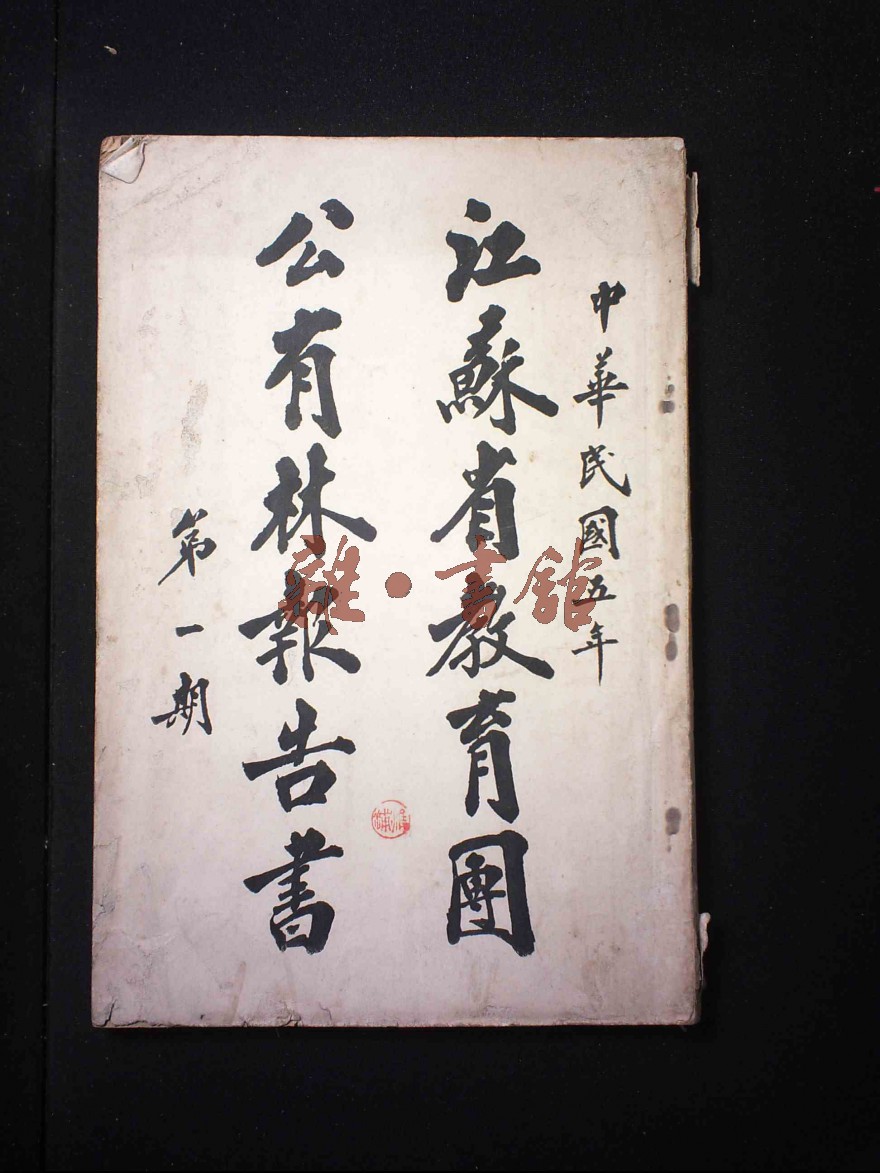 中華民國五年
江蘇省教育團
公有林報告書
第一期
雜·書館